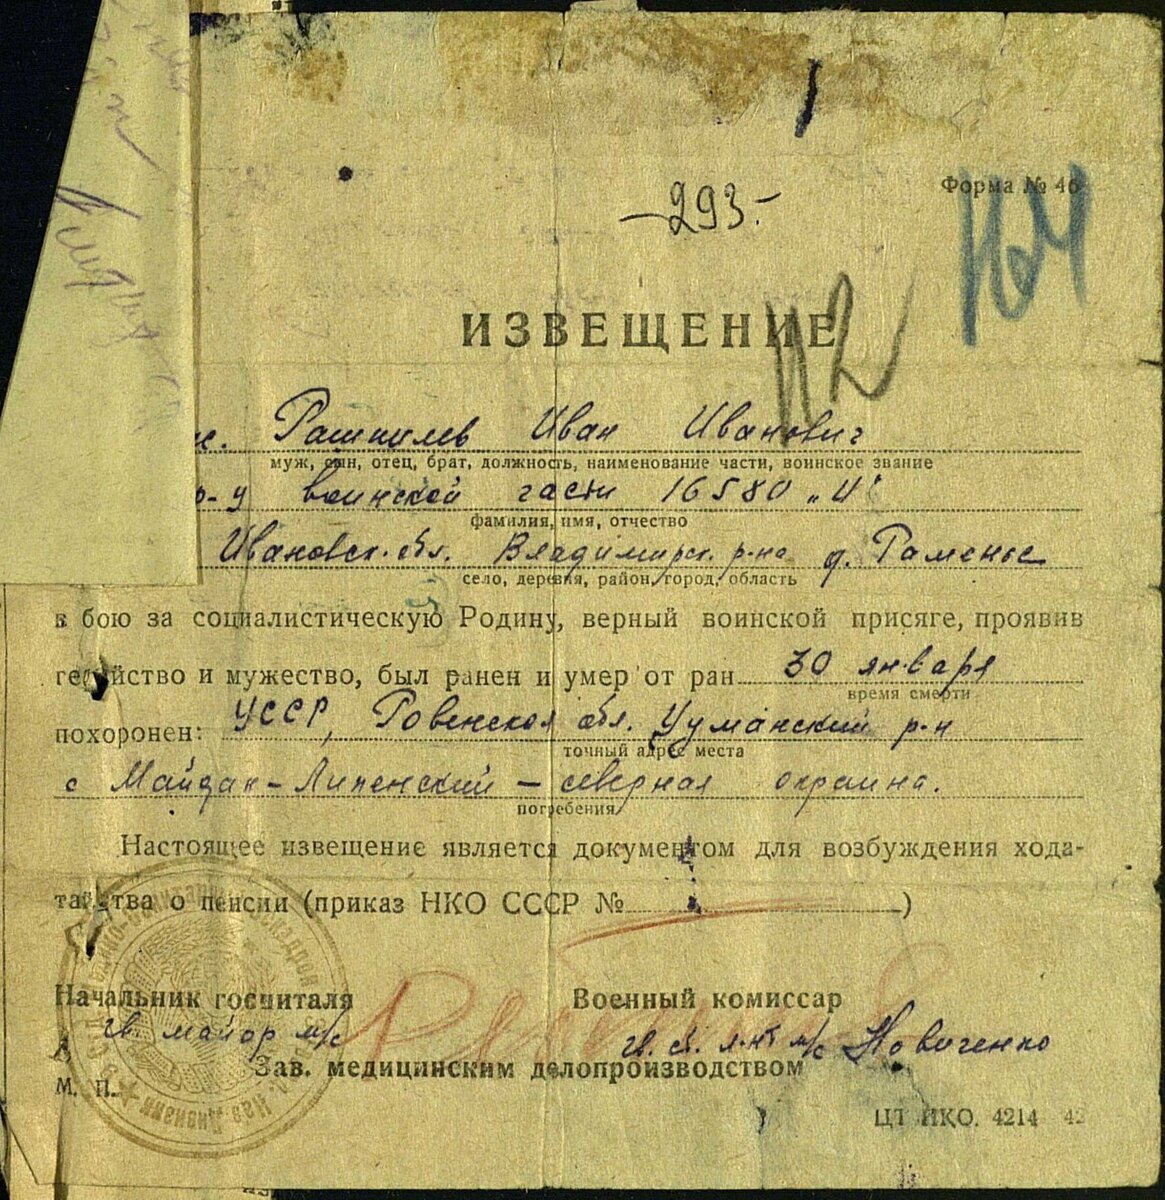 Форма № 46
-293.-
164
ИЗВЕЩЕНИЕ
112
Рашкилев Иван Иванович
муж, сын, отец, брат, должность, наименование части, воинское звание
р-у воинской части 16580 „И"
фамилия, имя, отчество
Ивановск. обл. Владимирск. р-на д. Раменье
село, деревня, район, город, область
в бою за социалистическую Родину, верный воинской присяге, проявив
геройство и мужество, был ранен и умер от ран 30 января
время смерти
похоронен: УССР, Ровенская обл. Цуманский р-н
точный адрес места
с Майдан-Липенский - северная окраина.
погребения
Настоящее извещение является документом для возбуждения хода-
тайства о пенсии (приказ НКО СССР № )
Начальник госпиталя Военный комиссар
гв. майор м/с гв. ст. л-нт м/с Новиченко
Зав. медицинским делопроизводством
М. П.
ЦТ НКО. 4214 42